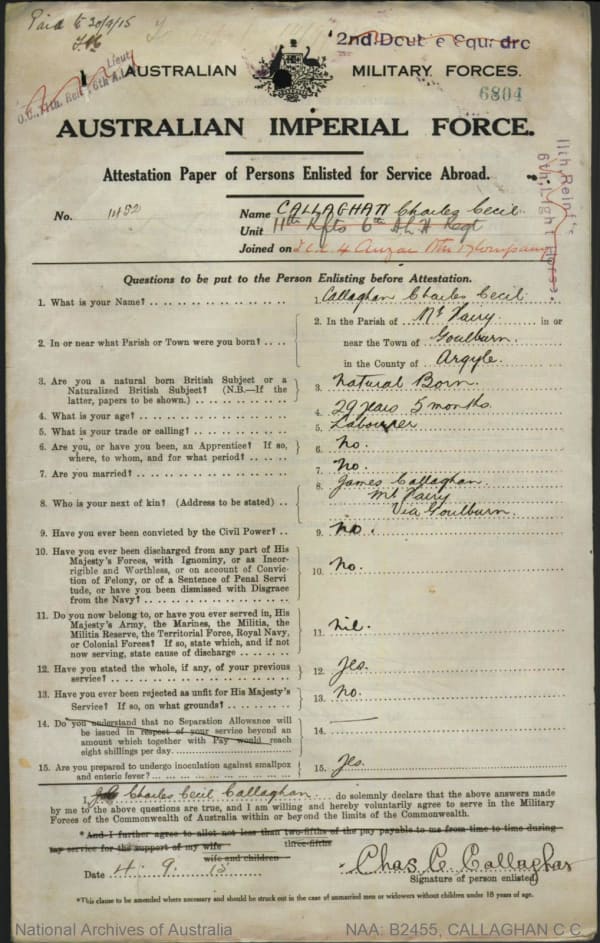 Paid to 30/9/15
2nd Dept e Squrdrc
Lieut
O.C., 11th Rei 6th A.L.
AUSTRALIAN MILITARY FORCES.
6804
AUSTRALIAN IMPERIAL FORCE.
Attestation Paper of Persons Enlisted for Service Abroad.
11th Reinf
6th Light Horse
No. 1452
Name CALLAGHAN Charles Cecil
Unit 11th Rfts 6th A.L.H Regt
Joined on
Questions to be put to the Person Enlisting before Attestation.
1. What is your Name? 1. Callaghan Charles Cecil
2. In or near what Parish or Town were you born? 2. In the Parish of Mt Fairy in or
near the Town of Goulburn.
in the County of Argyle.
3. Are you a natural born British Subject or a
Naturalized British Subject? (N.B.—If the
latter, papers to be shown.) 3. Natural Born.
4. What is your age? 4. 29 years 5 months.
5. What is your trade or calling? 5. Labourer
6. Are you, or have you been, an Apprentice? If so,
where, to whom, and for what period? 6. No.
7. Are you married? 7. No.
8. Who is your next of kin? (Address to be stated) 8. James Callaghan.
Mt Fairy
Via Goulburn.
9. Have you ever been convicted by the Civil Power? 9. No.
10. Have you ever been discharged from any part of His
Majesty's Forces, with Ignominy, or as Incor-
rigible and Worthless, or on account of Convic-
tion of Felony, or of a Sentence of Penal Servi
tude, or have you been dismissed with Disgrace
from the Navy? 10. No.
11. Do you now belong to, or have you ever served in, His
Majesty's Army, the Marines, the Militia, the
Militia Reserve, the Territorial Force, Royal Navy,
or Colonial Forces? If so, state which, and if not
now serving, state cause of discharge 11. nil.
12. Have you stated the whole, if any, of your previous
service? 12. Yes.
13. Have you ever been rejected as unfit for His Majesty's
Service? If so, on what grounds? 13. No.
14. Do you understand that no Separation Allowance will
be issued in respect of your service beyond an
amount which together with Pay would reach
eight shillings per day. 14. —
15. Are you prepared to undergo inoculation against smallpox
and enteric fever? 15. Yes.
I, Charles Cecil Callaghan do solemnly declare that the above answers made
by me to the above questions are true, and I am willing and hereby voluntarily agree to serve in the Military
Forces of the Commonwealth of Australia within or beyond the limits of the Commonwealth.
*And I further agree to allot not less than two-fifths of the pay payable to me from time to time during
three-fifths
my service for the support of my wife
wife and children
Date 4.9.15 Chas C. Callaghan
Signature of person enlisted.
*This clause to be amended where necessary and should be struck out in the case of unmarried men or widowers without children under 18 years of age.
National Archives of Australia NAA: B2455, CALLAGHAN C C